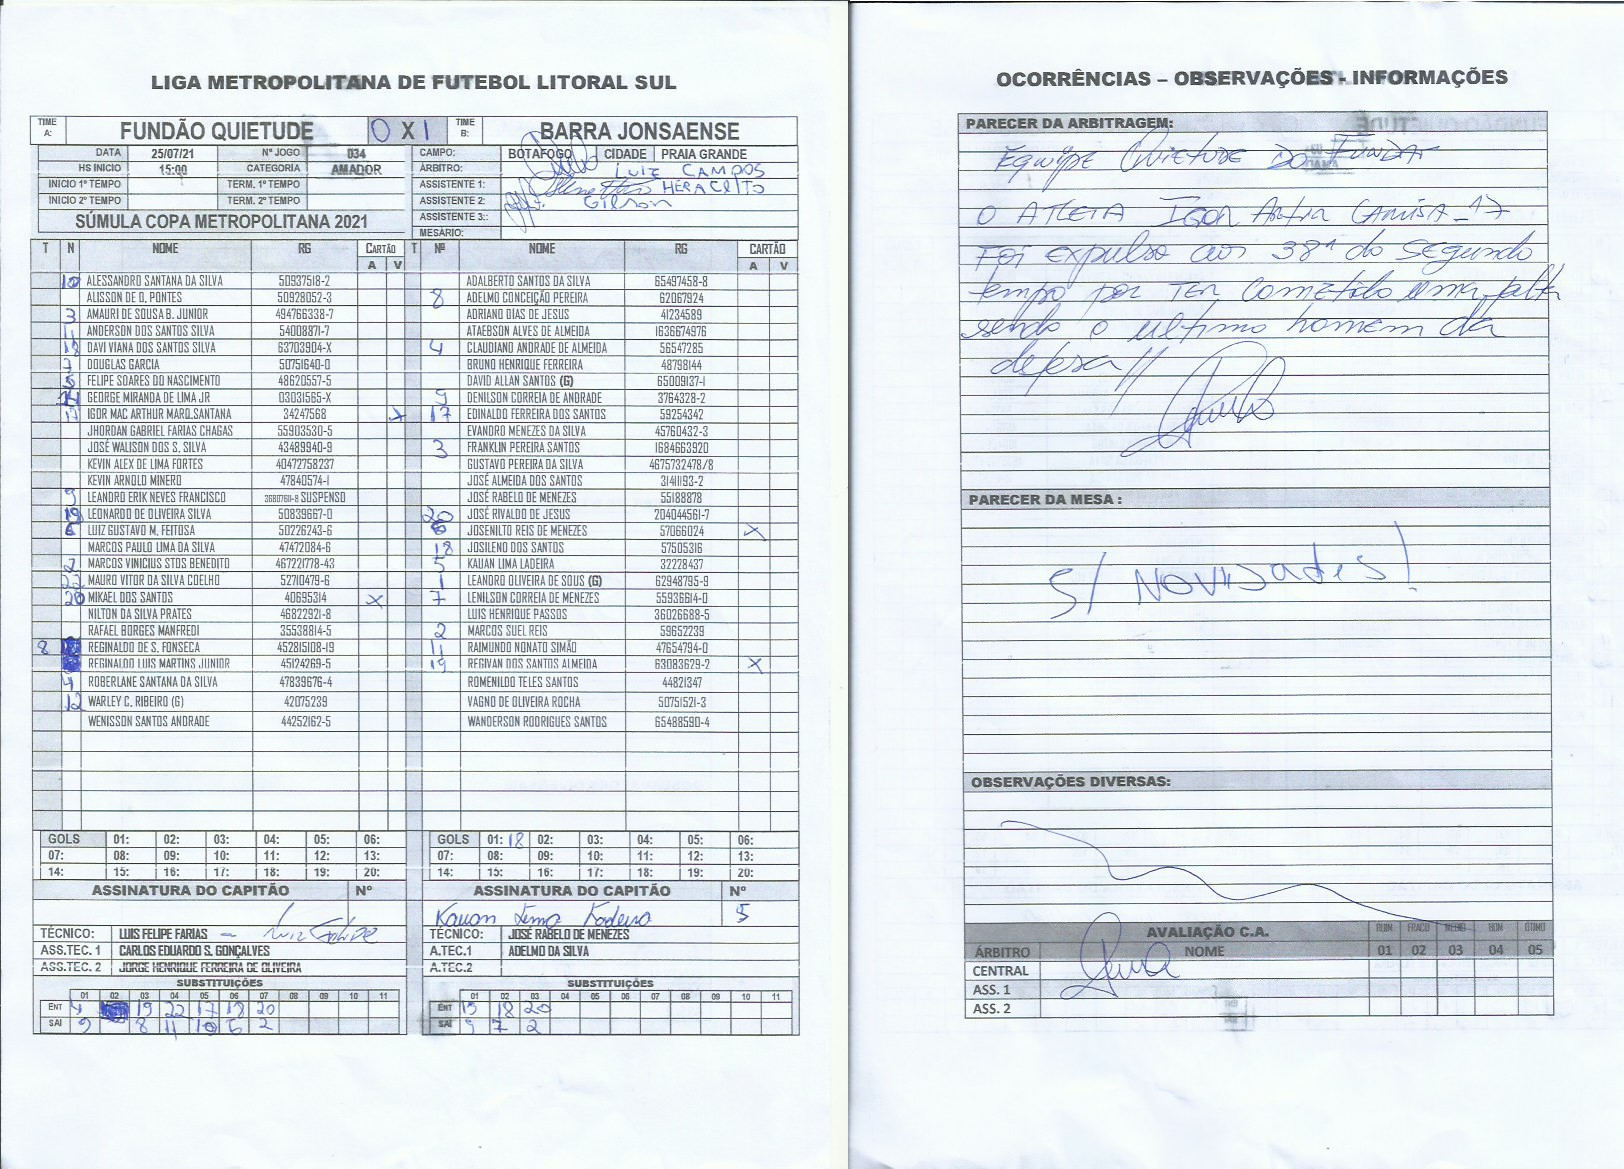 LIGA METROPOLITANA DE FUTEBOL LITORAL SUL
TIME A: FUNDÃO QUIETUDE 0 X 1 TIME B: BARRA JONSAENSE
DATA 25/07/21 Nº JOGO 034 CAMPO: BOTAFOGO CIDADE PRAIA GRANDE
HS INICIO 15:00 CATEGORIA AMADOR ÁRBITRO: LUIZ CAMPOS
INICIO 1º TEMPO TERM. 1º TEMPO ASSISTENTE 1: HERACLITO
INICIO 2º TEMPO TERM. 2º TEMPO ASSISTENTE 2: Gilson
SÚMULA COPA METROPOLITANA 2021 ASSISTENTE 3::
MESÁRIO:
T N NOME RG CARTÃO A V T Nº NOME RG CARTÃO A V
10 ALESSANDRO SANTANA DA SILVA 50937518-2 ADALBERTO SANTOS DA SILVA 65497458-8
ALISSON DE O. PONTES 50928052-3 8 ADELMO CONCEIÇÃO PEREIRA 62067924
3 AMAURI DE SOUSA B. JUNIOR 494766338-7 ADRIANO DIAS DE JESUS 41234589
11 ANDERSON DOS SANTOS SILVA 54008871-7 ATAEBSON ALVES DE ALMEIDA 1636674976
18 DAVI VIANA DOS SANTOS SILVA 63703904-X 4 CLAUDIANO ANDRADE DE ALMEIDA 56547285
7 DOUGLAS GARCIA 50751640-0 BRUNO HENRIQUE FERREIRA 48798144
FELIPE SOARES DO NASCIMENTO 48620557-5 DAVID ALLAN SANTOS (G) 65009137-1
GEORGE MIRANDA DE LIMA JR 03031565-X 9 DENILSON CORREIA DE ANDRADE 3764328-2
17 IGOR MAC ARTHUR MARQ.SANTANA 34247568 X 17 EDINALDO FERREIRA DOS SANTOS 59254342
JHORDAN GABRIEL FARIAS CHAGAS 55903530-5 EVANDRO MENEZES DA SILVA 45760432-3
JOSÉ WALISON DOS S. SILVA 43489940-9 3 FRANKLIN PEREIRA SANTOS 1684663920
KEVIN ALEX DE LIMA FORTES 40472758237 GUSTAVO PEREIRA DA SILVA 4675732478/8
KEVIN ARNOLD MINERO 47840574-1 JOSÉ ALMEIDA DOS SANTOS 31411193-2
9 LEANDRO ERIK NEVES FRANCISCO 36807611-8 SUSPENSO JOSÉ RABELO DE MENEZES 55188878
19 LEONARDO DE OLIVEIRA SILVA 50839667-0 20 JOSÉ RIVALDO DE JESUS 204044561-7
6 LUIZ GUSTAVO M. FEITOSA 50226243-6 6 JOSENILTO REIS DE MENEZES 57066024 X
MARCOS PAULO LIMA DA SILVA 47472084-6 18 JOSILENO DOS SANTOS 57505316
2 MARCOS VINICIUS STOS BENEDITO 467221778-43 5 KAUAN LIMA LADEIRA 32228437
22 MAURO VITOR DA SILVA COELHO 52710479-6 1 LEANDRO OLIVEIRA DE SOUS (G) 62948795-9
20 MIKAEL DOS SANTOS 40695314 X 7 LENILSON CORREIA DE MENEZES 55936614-0
NILTON DA SILVA PRATES 46822921-8 LUIS HENRIQUE PASSOS 36026688-5
RAFAEL BORGES MANFREDI 35538814-5 2 MARCOS SUEL REIS 59652239
8 REGINALDO DE S. FONSECA 452815108-19 11 RAIMUNDO NONATO SIMÃO 47654794-0
REGINALDO LUIS MARTINS JUNIOR 45124269-5 19 REGIVAN DOS SANTOS ALMEIDA 63083629-2 X
4 ROBERLANE SANTANA DA SILVA 47839676-4 ROMENILDO TELES SANTOS 44821347
12 WARLEY C. RIBEIRO (G) 42075239 VAGNO DE OLIVEIRA ROCHA 50751521-3
WENISSON SANTOS ANDRADE 44252162-5 WANDERSON RODRIGUES SANTOS 65488590-4
GOLS 01: 02: 03: 04: 05: 06: GOLS 01: 18 02: 03: 04: 05: 06:
07: 08: 09: 10: 11: 12: 13: 07: 08: 09: 10: 11: 12: 13:
14: 15: 16: 17: 18: 19: 20: 14: 15: 16: 17: 18: 19: 20:
ASSINATURA DO CAPITÃO Nº ASSINATURA DO CAPITÃO Nº
Kauan Lima Ladeira 5
TÉCNICO: LUIS FELIPE FARIAS - Luiz Felipe TÉCNICO: JOSÉ RABELO DE MENEZES
ASS.TEC. 1 CARLOS EDUARDO S. GONÇALVES A.TEC.1 ADELMO DA SILVA
ASS.TEC. 2 JORGE HENRIQUE FERREIRA DE OLIVEIRA A.TEC.2
SUBSTITUIÇÕES SUBSTITUIÇÕES
01 02 03 04 05 06 07 08 09 10 11 01 02 03 04 05 06 07 08 09 10 11
ENT 4 19 22 17 18 20 ENT 19 18 20
SAI 9 8 11 10 6 2 SAI 9 7 2
OCORRÊNCIAS – OBSERVAÇÕES - INFORMAÇÕES
PARECER DA ARBITRAGEM:
Equipe Quietude do Fundão
O ATLETA IGOR Artur CAMISA 17
Foi expulso aos 38' do segundo
tempo por TER Cometido uma falta
sendo o ultimo homem da
defesa //
PARECER DA MESA :
S/ NOVIDades!
OBSERVAÇÕES DIVERSAS:
AVALIAÇÃO C.A. RUIM FRACO MEDIO BOM ÓTIMO
ÁRBITRO NOME 01 02 03 04 05
CENTRAL
ASS. 1
ASS. 2